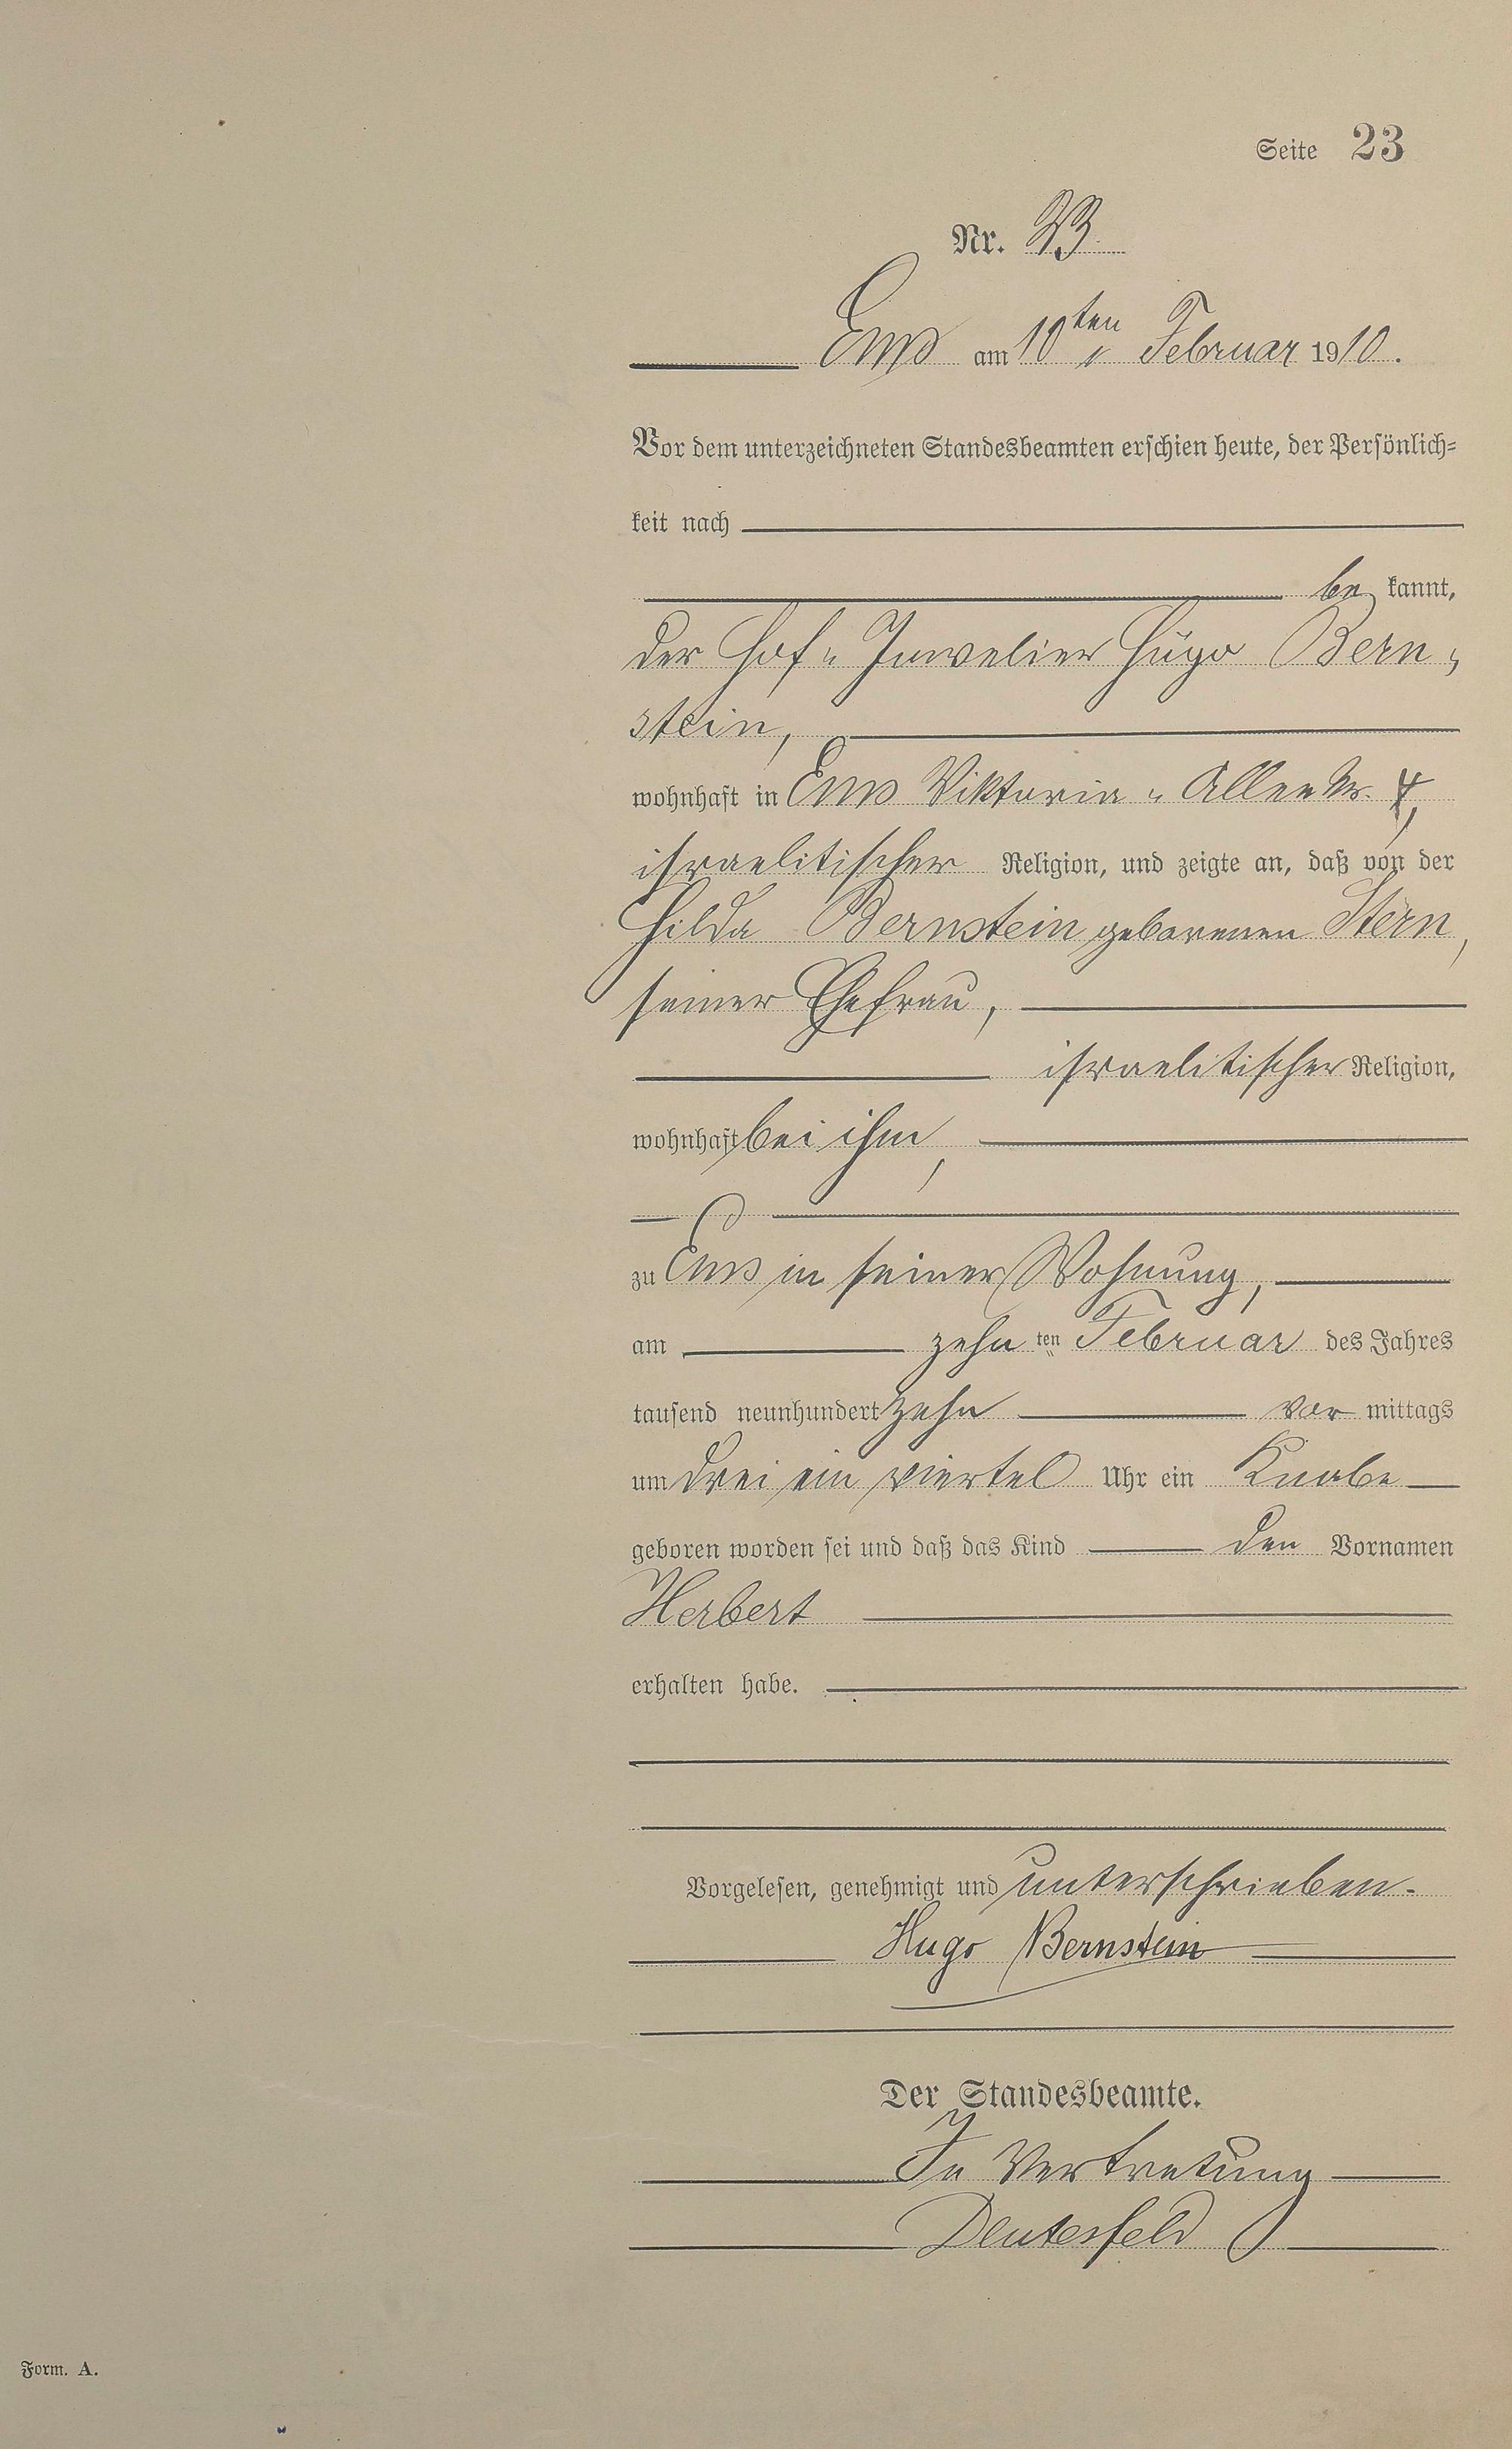 Seite 23
Nr. 23
Ems am 10ten Februar 1910.
Vor dem unterzeichneten Standesbeamten erschien heute, der Persönlich=
keit nach
be kannt,
der Hof= Juwelier Hugo Bern=
stein,
wohnhaft in Ems Viktoria= Allee Nr. 4,
israelitischer Religion, und zeigte an, daß von der
Hilda Bernstein geborenen Stern,
seiner Ehefrau,
israelitischer Religion,
wohnhaft bei ihm,
zu Ems in seiner Wohnung,
am zehn ten Februar des Jahres
tausend neunhundert zehn vor mittags
um drei ein viertel Uhr ein Knabe
geboren worden sei und daß das Kind den Vornamen
Herbert
erhalten habe.
Vorgelesen, genehmigt und unterschrieben.
Hugo Bernstein
Der Standesbeamte.
In Vertretung
Deutesfeld
Form. A.